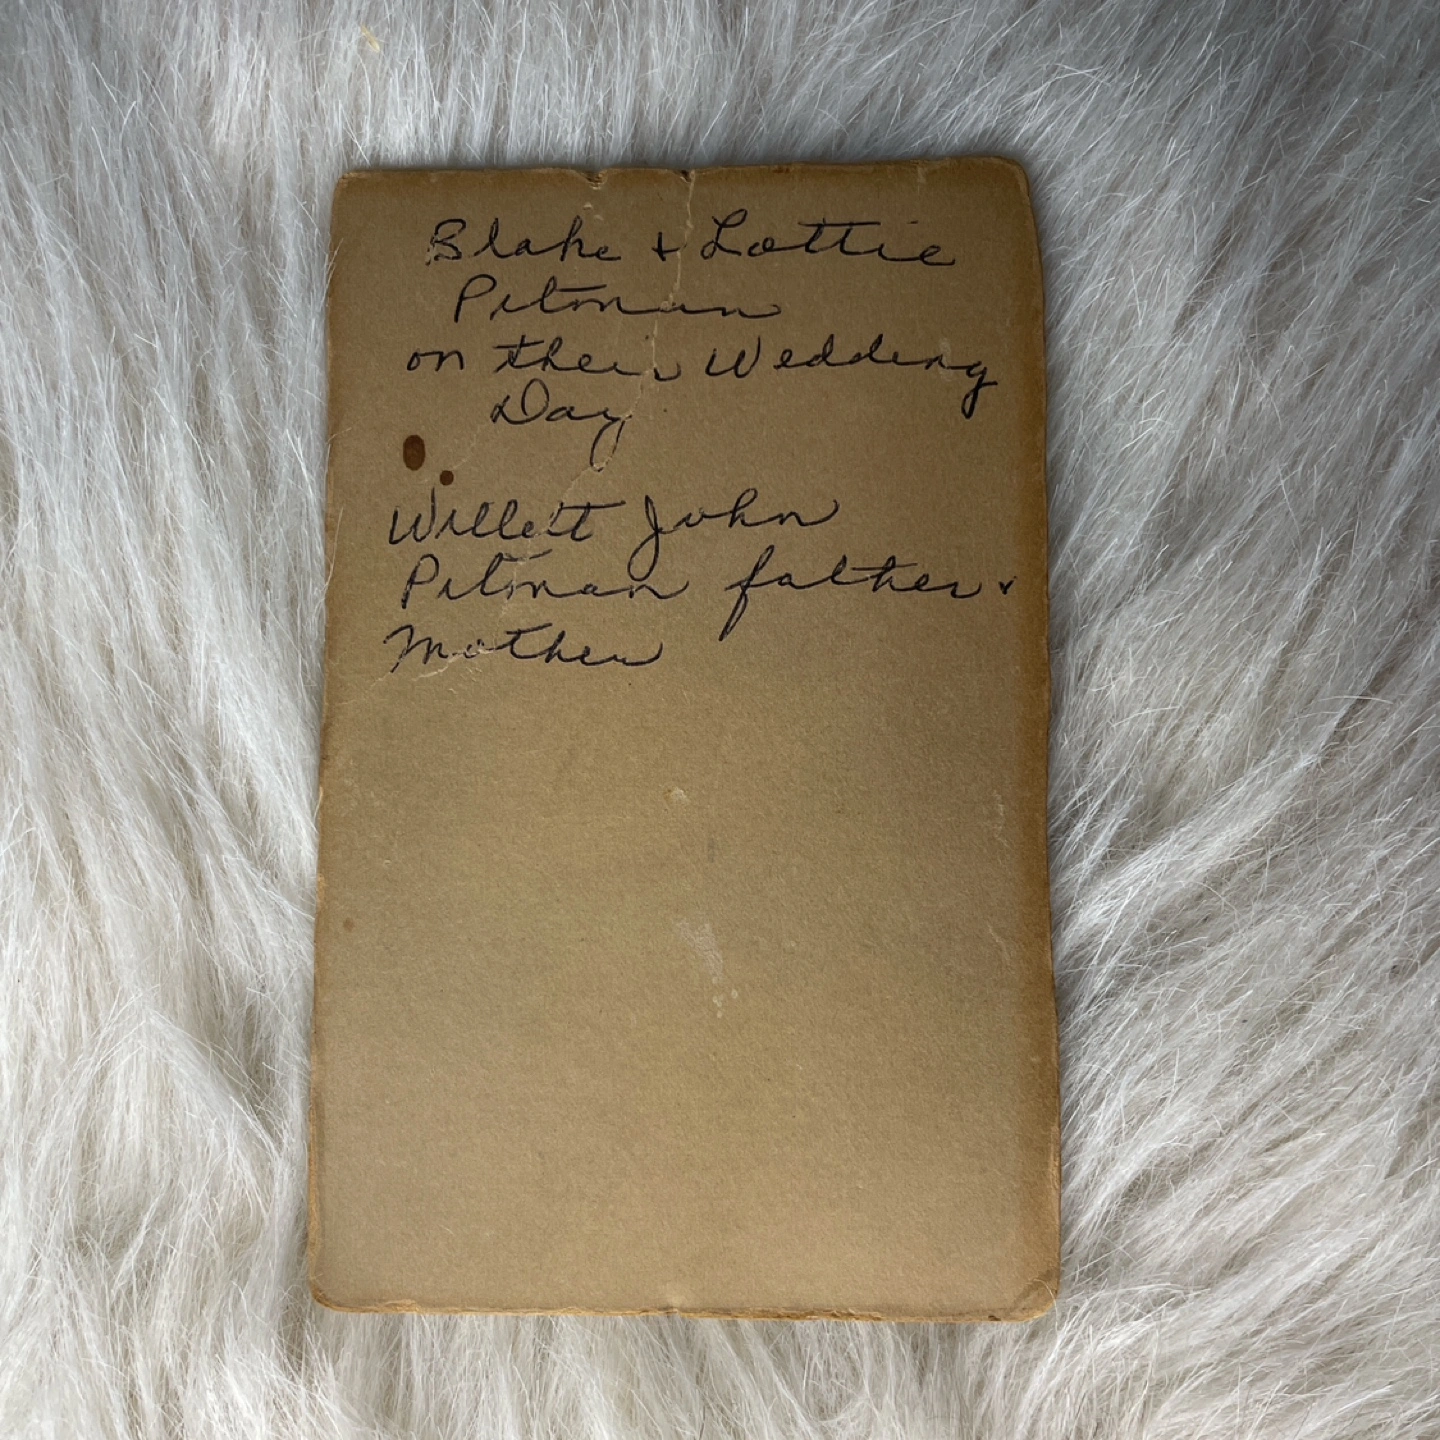 Blake + Lottie
Pitman
on their Wedding
Day
Willett John
Pitman father +
Mother